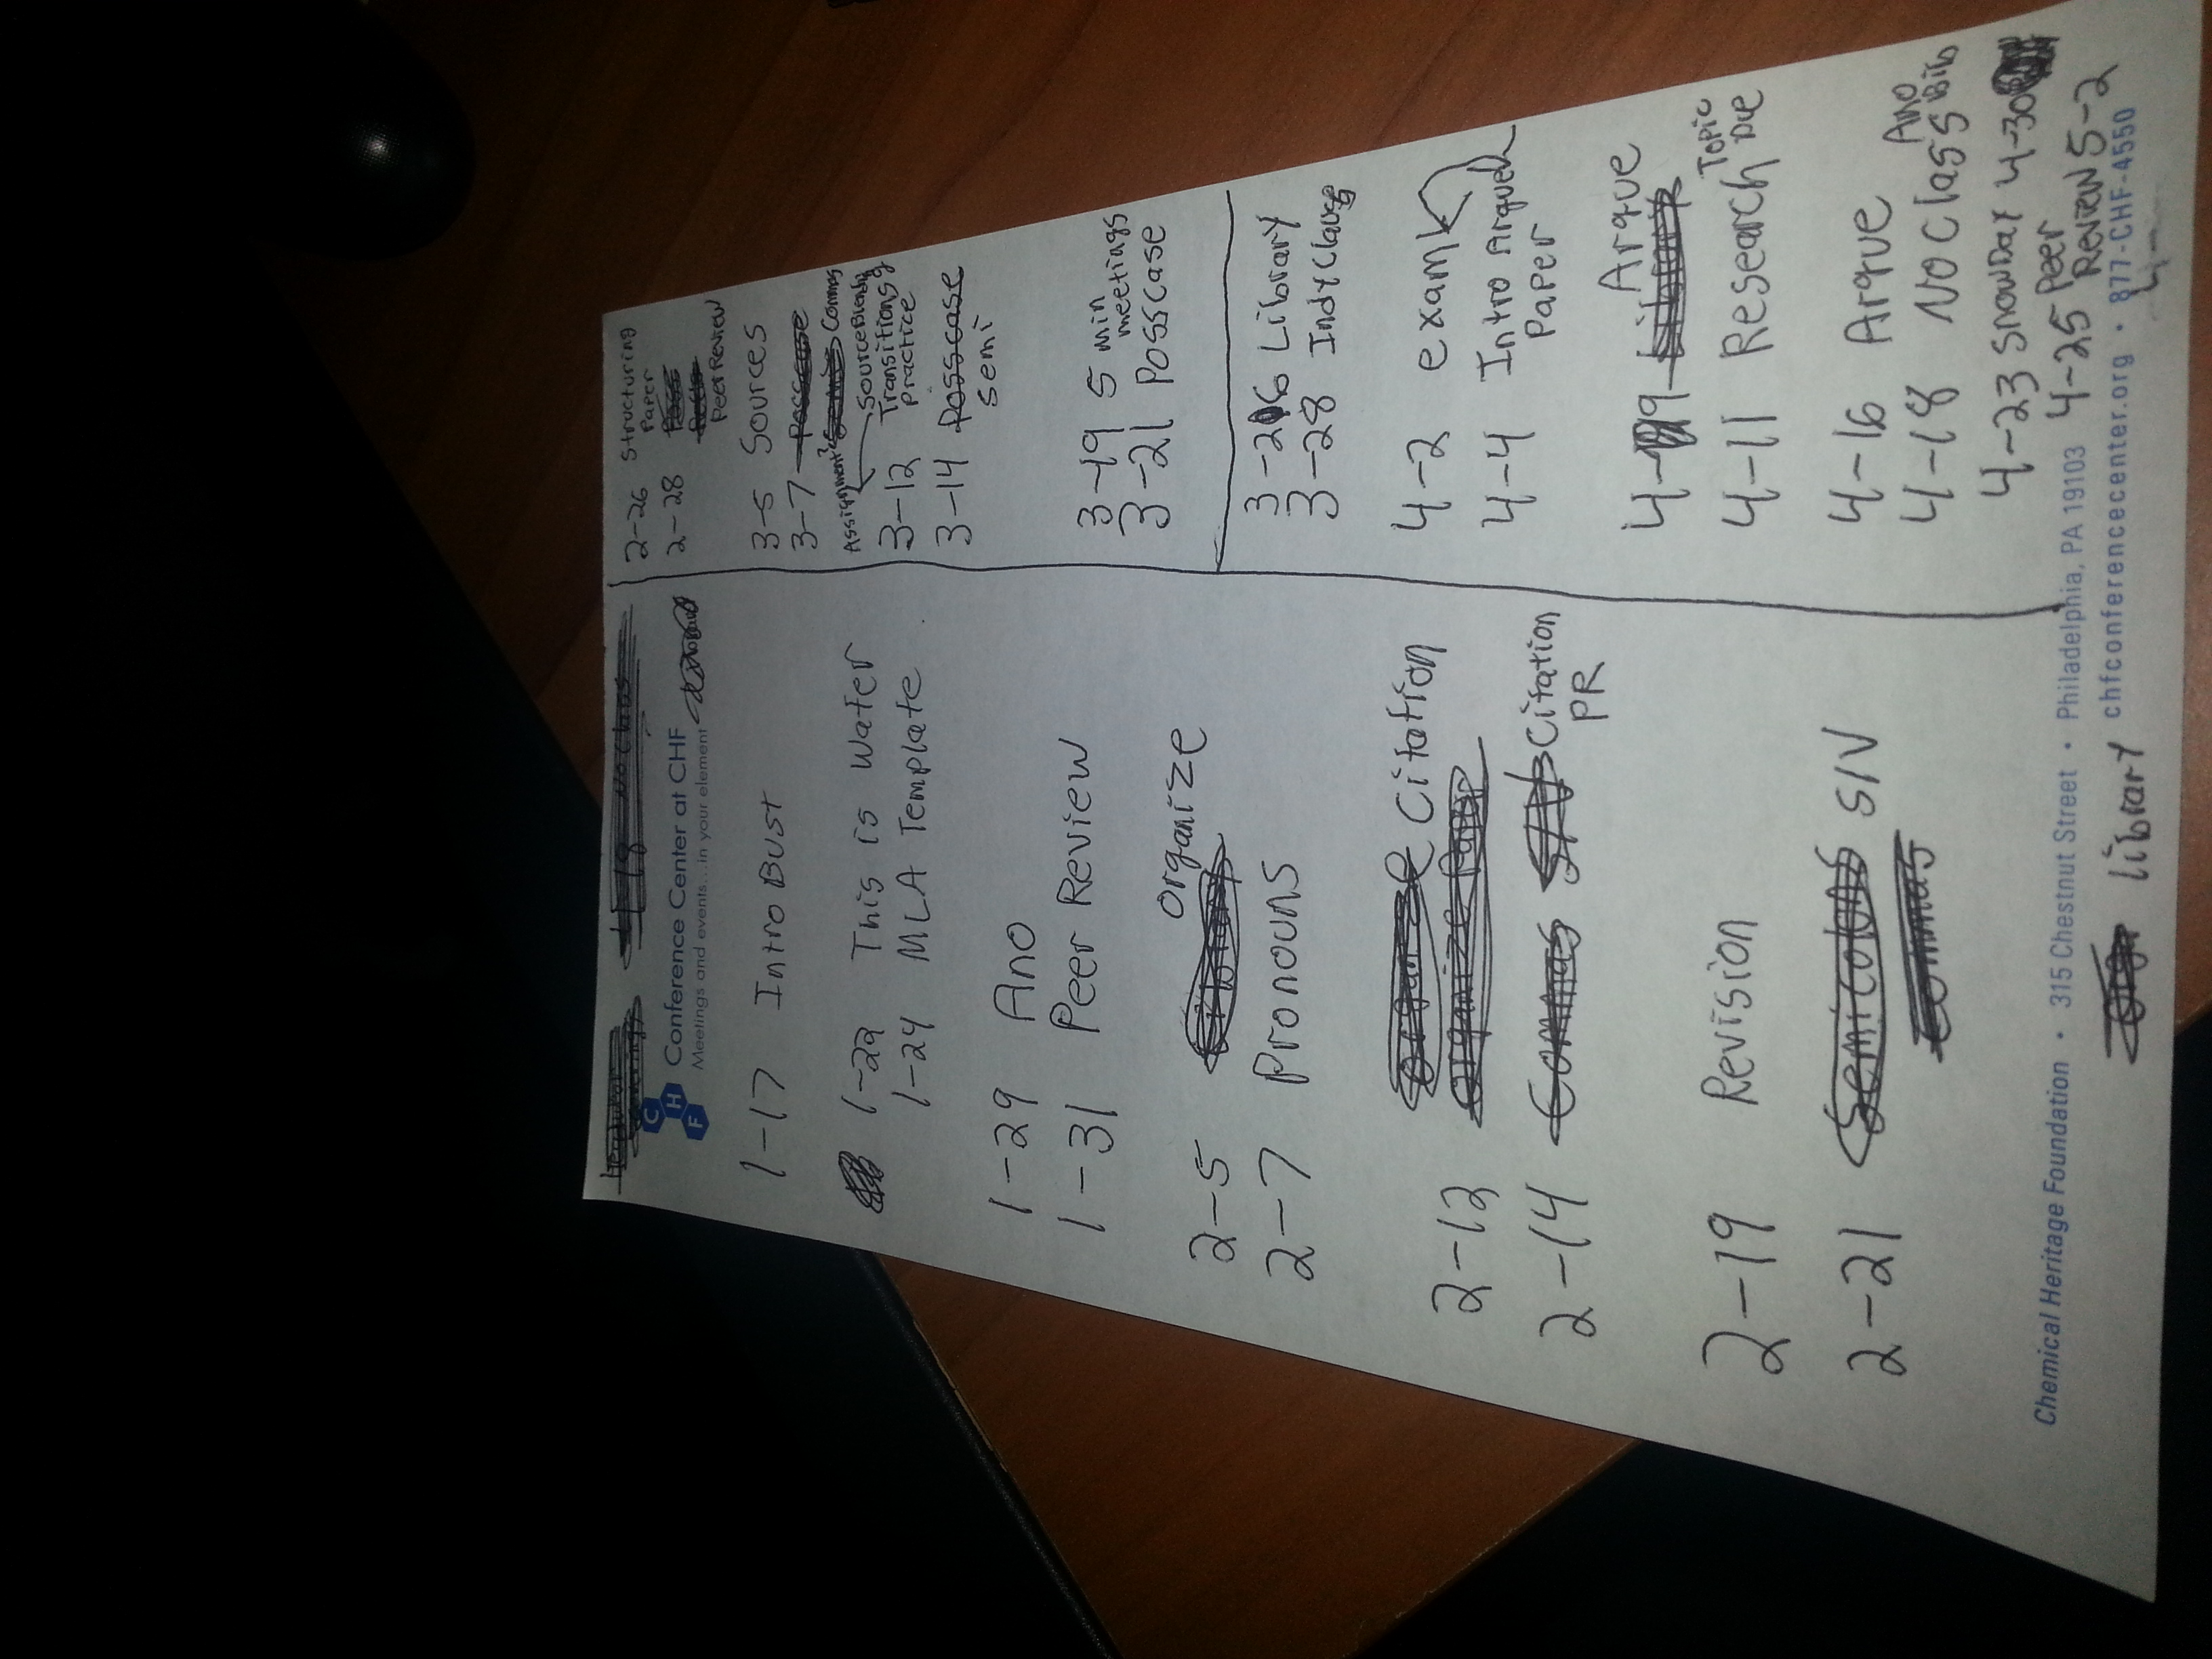 4-18 No Class
C
H
F
Conference Center at CHF
Meetings and events...in your element
1-17 Intro Bust
1-22 This is Water
1-24 MLA Template
1-29 Ano
1-31 Peer Review
organize
2-5 Library
2-7 Pronouns
organize Citation
2-12 organize Paper
2-14 Commas S/V Citation
PR
2-19 Revision
2-21 Semicolons S/V
commas
2-26 Structuring
Paper
2-28 Poss
Peer Review
3-5 Sources
3-7 Posscase
Assignment? Semis Commas
Source Blending
3-12 Transitions &
Practice
3-14 Posscase
semi
3-19 5 min
meetings
3-21 Posscase
3-26 Library
3-28 Indy Clause
4-2 exam
4-4 Intro Argue
Paper
Argue
4-9 Library
4-11 Research Topic
Due
4-16 Argue
4-18 No Class Ano
Bib
4-23 Snow Day 4-30
4-25 Peer
Review 5-2
Chemical Heritage Foundation • 315 Chestnut Street • Philadelphia, PA 19103
chfconferencecenter.org • 877-CHF-4550
Orga library
4-